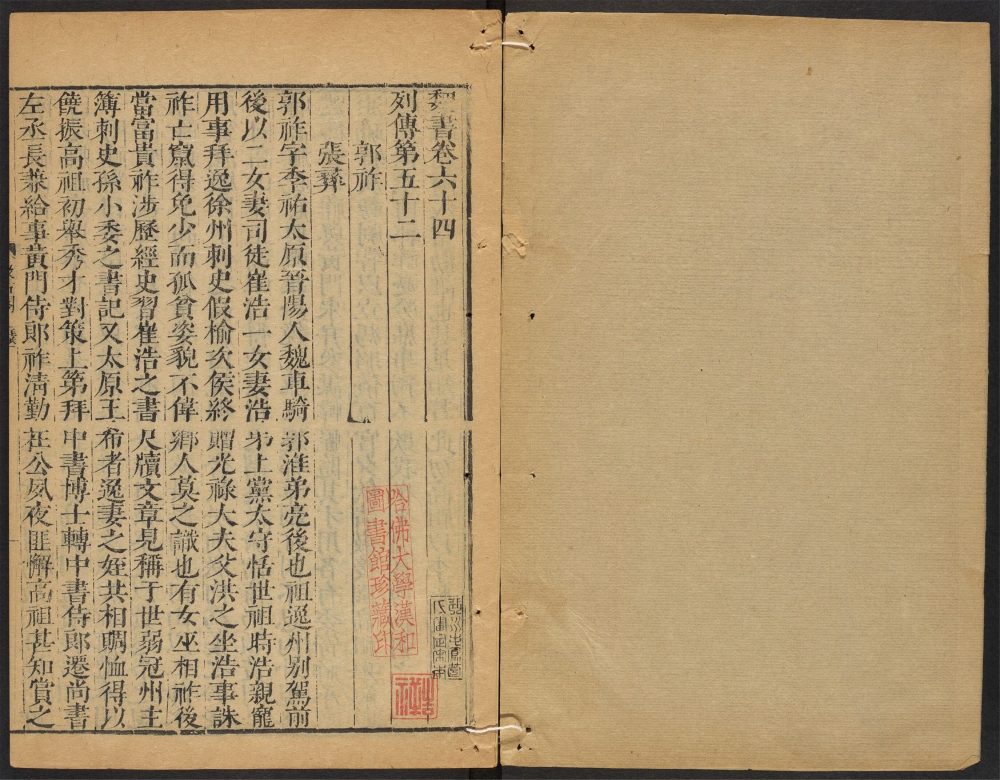 魏書卷六十四
列傳第五十二
郭祚
張彝
郭祚字季祐太原晉陽人魏車騎郭淮弟亮後也祖逸州別駕前
後以二女妻司徒崔浩一女妻浩弟上黨太守恬世祖時浩親寵
用事拜逸徐州刺史假榆次侯終贈光祿大夫父洪之坐浩事誅
祚亡竄得免少而孤貧姿貌不偉鄉人莫之識也有女巫相祚後
當富貴祚涉歷經史習崔浩之書尺牘文章見稱于世弱冠州主
簿刺史孫小委之書記又太原王希者逸妻之姪共相賙恤得以
饒振高祖初舉秀才對策上第拜中書博士轉中書侍郎遷尚書
左丞長兼給事黃門侍郎祚清勤在公夙夜匪懈高祖甚知賞之
哈佛大學漢和
圖書館珍藏印